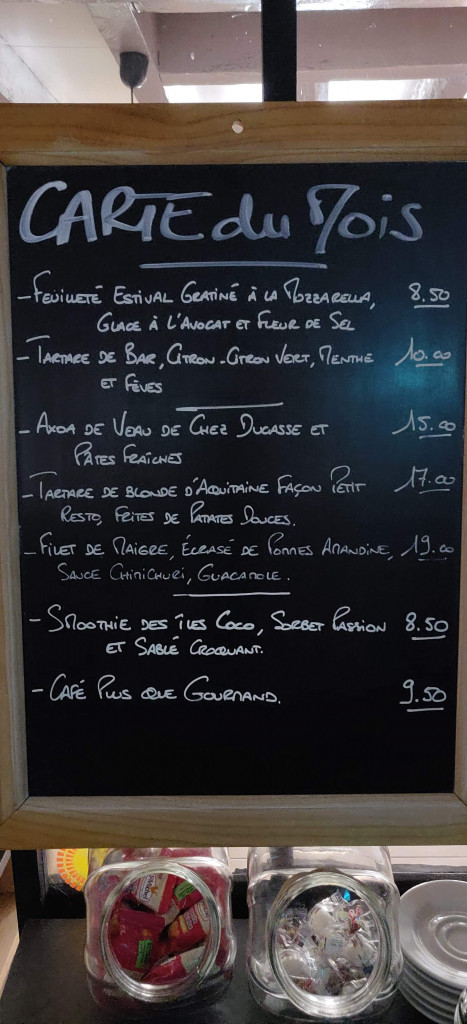 CARTE du Mois
- FEUILLETÉ ESTIVAL GRATINÉ À LA MOZZARELLA, 8.50
GLACE À L'AVOCAT ET FLEUR DE SEL
- TARTARE DE BAR, CITRON-CITRON VERT, MENTHE 10.00
ET FÈVES
- AXOA DE VEAU DE CHEZ DUCASSE ET 15.00
PÂTES FRAÎCHES
- TARTARE DE BLONDE D'AQUITAINE FAÇON PETIT 17.00
RESTO, FRITES DE PATATES DOUCES.
- FILET DE MAIGRE, ÉCRASÉ DE POMMES AMANDINE, 19.00
SAUCE CHIMICHURI, GUACAMOLE.
- SMOOTHIE DES ÎLES COCO, SORBET PASSION 8.50
ET SABLÉ CROQUANT.
- CAFÉ PLUS QUE GOURMAND. 9.50